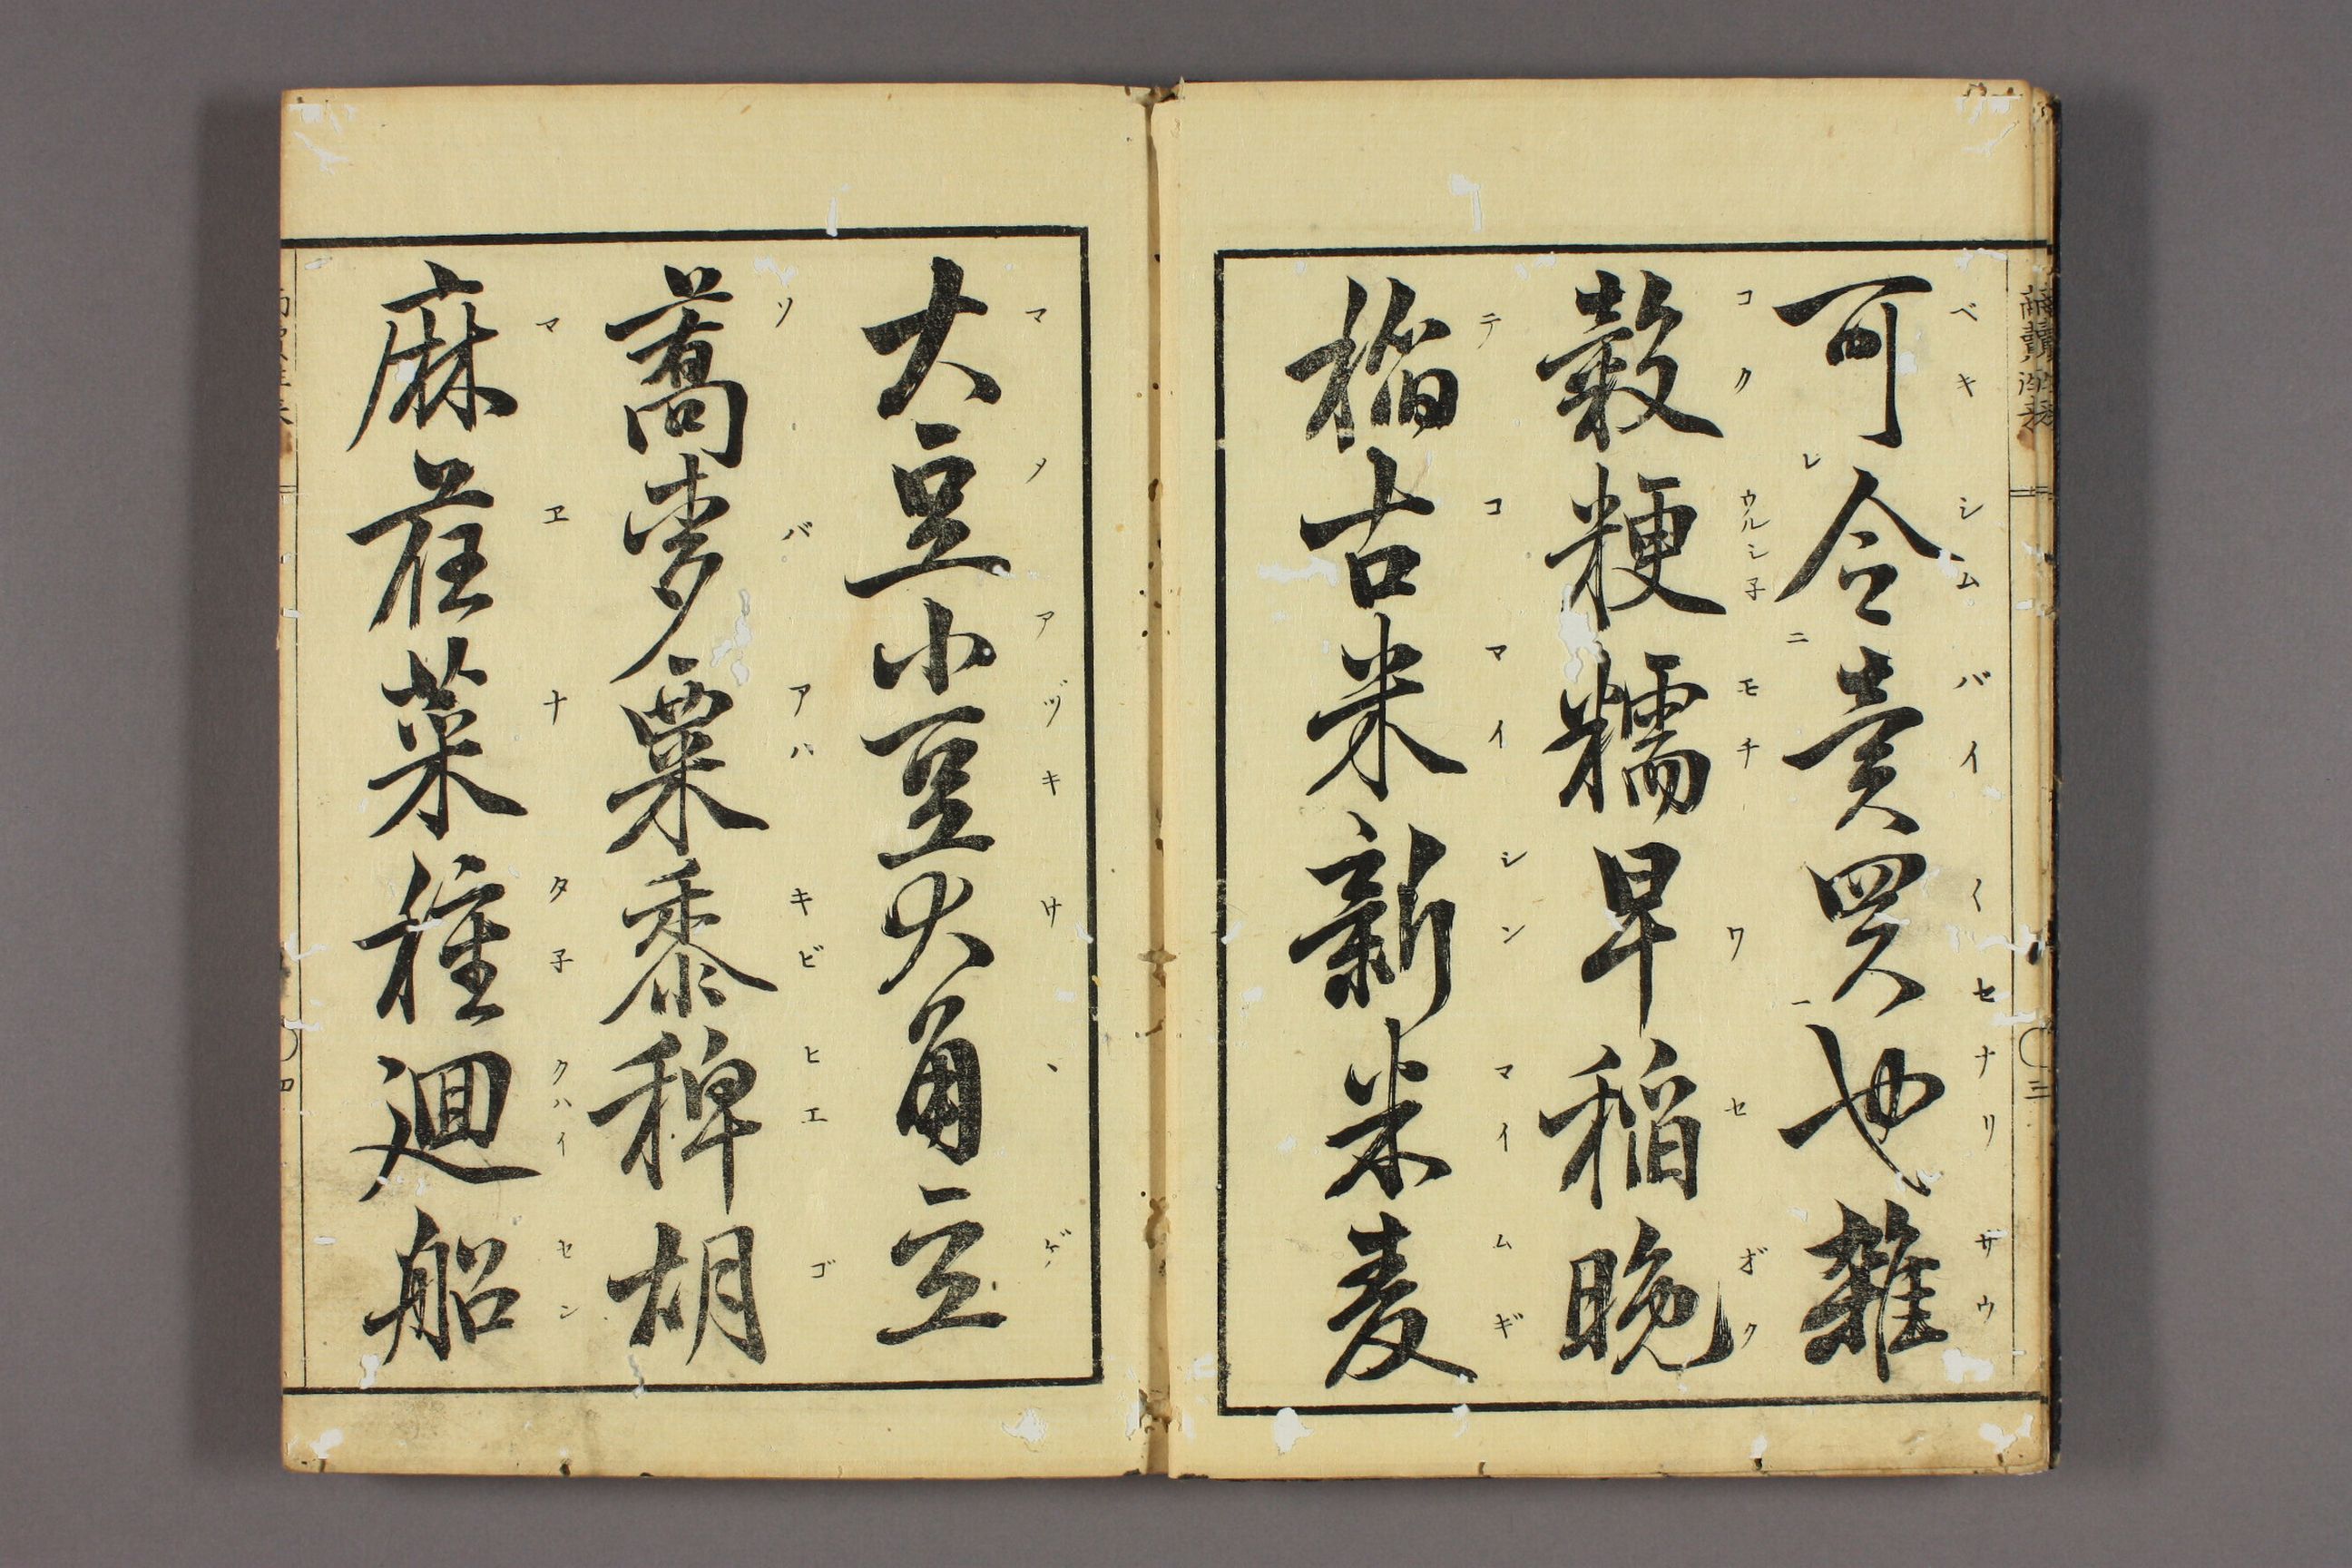 可令賣買也雜
ベキシムバイ〱セナリザウ
レ二一
穀粳糯早稲晩
コクウルシ子モチワセオク
稲古米新米麦
テコマイシンマイムギ
三
大豆小豆大角豆
マメアヅキサヽゲ
蕎麥粟黍稗胡
ソバアハキビヒエゴ
麻荏菜種廻船
マヱナタ子クハイセン
四